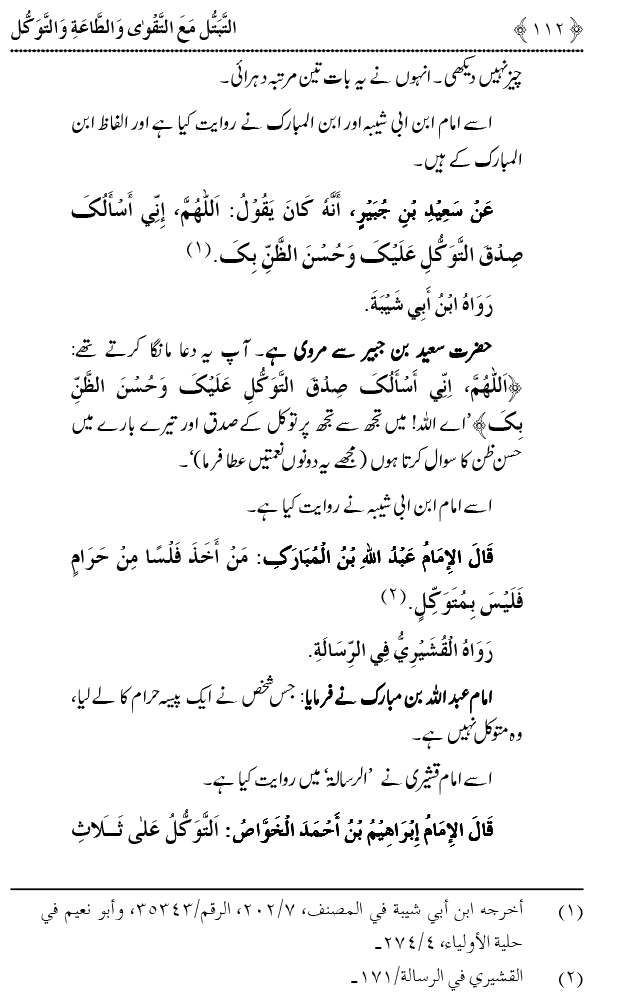 ﴿ ١١٢ ﴾ التَّبَتُّل مَعَ التَّقْوٰى وَالطَّاعَةِ وَالتَّوَكُّل
چیز نہیں دیکھی۔ انہوں نے یہ بات تین مرتبہ دہرائی۔
اسے امام ابن ابی شیبہ اور ابن المبارک نے روایت کیا ہے اور الفاظ ابن
المبارک کے ہیں۔
عَنْ سَعِيْدِ بْنِ جُبَيْرٍ، أَنَّهُ كَانَ يَقُوْلُ: اَللّٰهُمَّ، إِنِّي أَسْأَلُکَ
صِدْقَ التَّوَكُّلِ عَلَيْکَ وَحُسْنَ الظَّنِّ بِکَ.(١)
رَوَاهُ ابْنُ أَبِي شَيْبَةَ.
حضرت سعید بن جبیر سے مروی ہے۔ آپ یہ دعا مانگا کرتے تھے:
﴿اَللّٰهُمَّ، اِنِّي أَسْأَلُکَ صِدْقَ التَّوَكُّلِ عَلَيْکَ وَحُسْنَ الظَّنِّ
بِکَ﴾ ’اے اللہ! میں تجھ سے تجھ پر توکل کے صدق اور تیرے بارے میں
حسن ظن کا سوال کرتا ہوں (مجھے یہ دونوں نعمتیں عطا فرما)‘۔
اسے امام ابن ابی شیبہ نے روایت کیا ہے۔
قَالَ الإِمَامُ عَبْدُ اللهِ بْنُ الْمُبَارَکِ: مَنْ أَخَذَ فَلْسًا مِنْ حَرَامٍ
فَلَيْسَ بِمُتَوَكِّلٍ.(٢)
رَوَاهُ الْقُشَيْرِيُّ فِي الرِّسَالَةِ.
امام عبد اللہ بن مبارک نے فرمایا: جس شخص نے ایک پیسہ حرام کا لے لیا،
وہ متوکل نہیں ہے۔
اسے امام قشیری نے ’الرسالۃ‘ میں روایت کیا ہے۔
قَالَ الإِمَامُ إِبْرَاهِيْمُ بْنُ أَحْمَدَ الْخَوَّاصُ: اَلتَّوَكُّلُ عَلٰى ثَـلَاثِ
(١) أخرجه ابن أبي شيبة في المصنف، ٢٠٢/٧، الرقم/٣٥٣٤٣، وأبو نعيم في
حلية الأولياء، ٢٧٤/٤ـ
(٢) القشيري في الرسالة/١٧١ـ